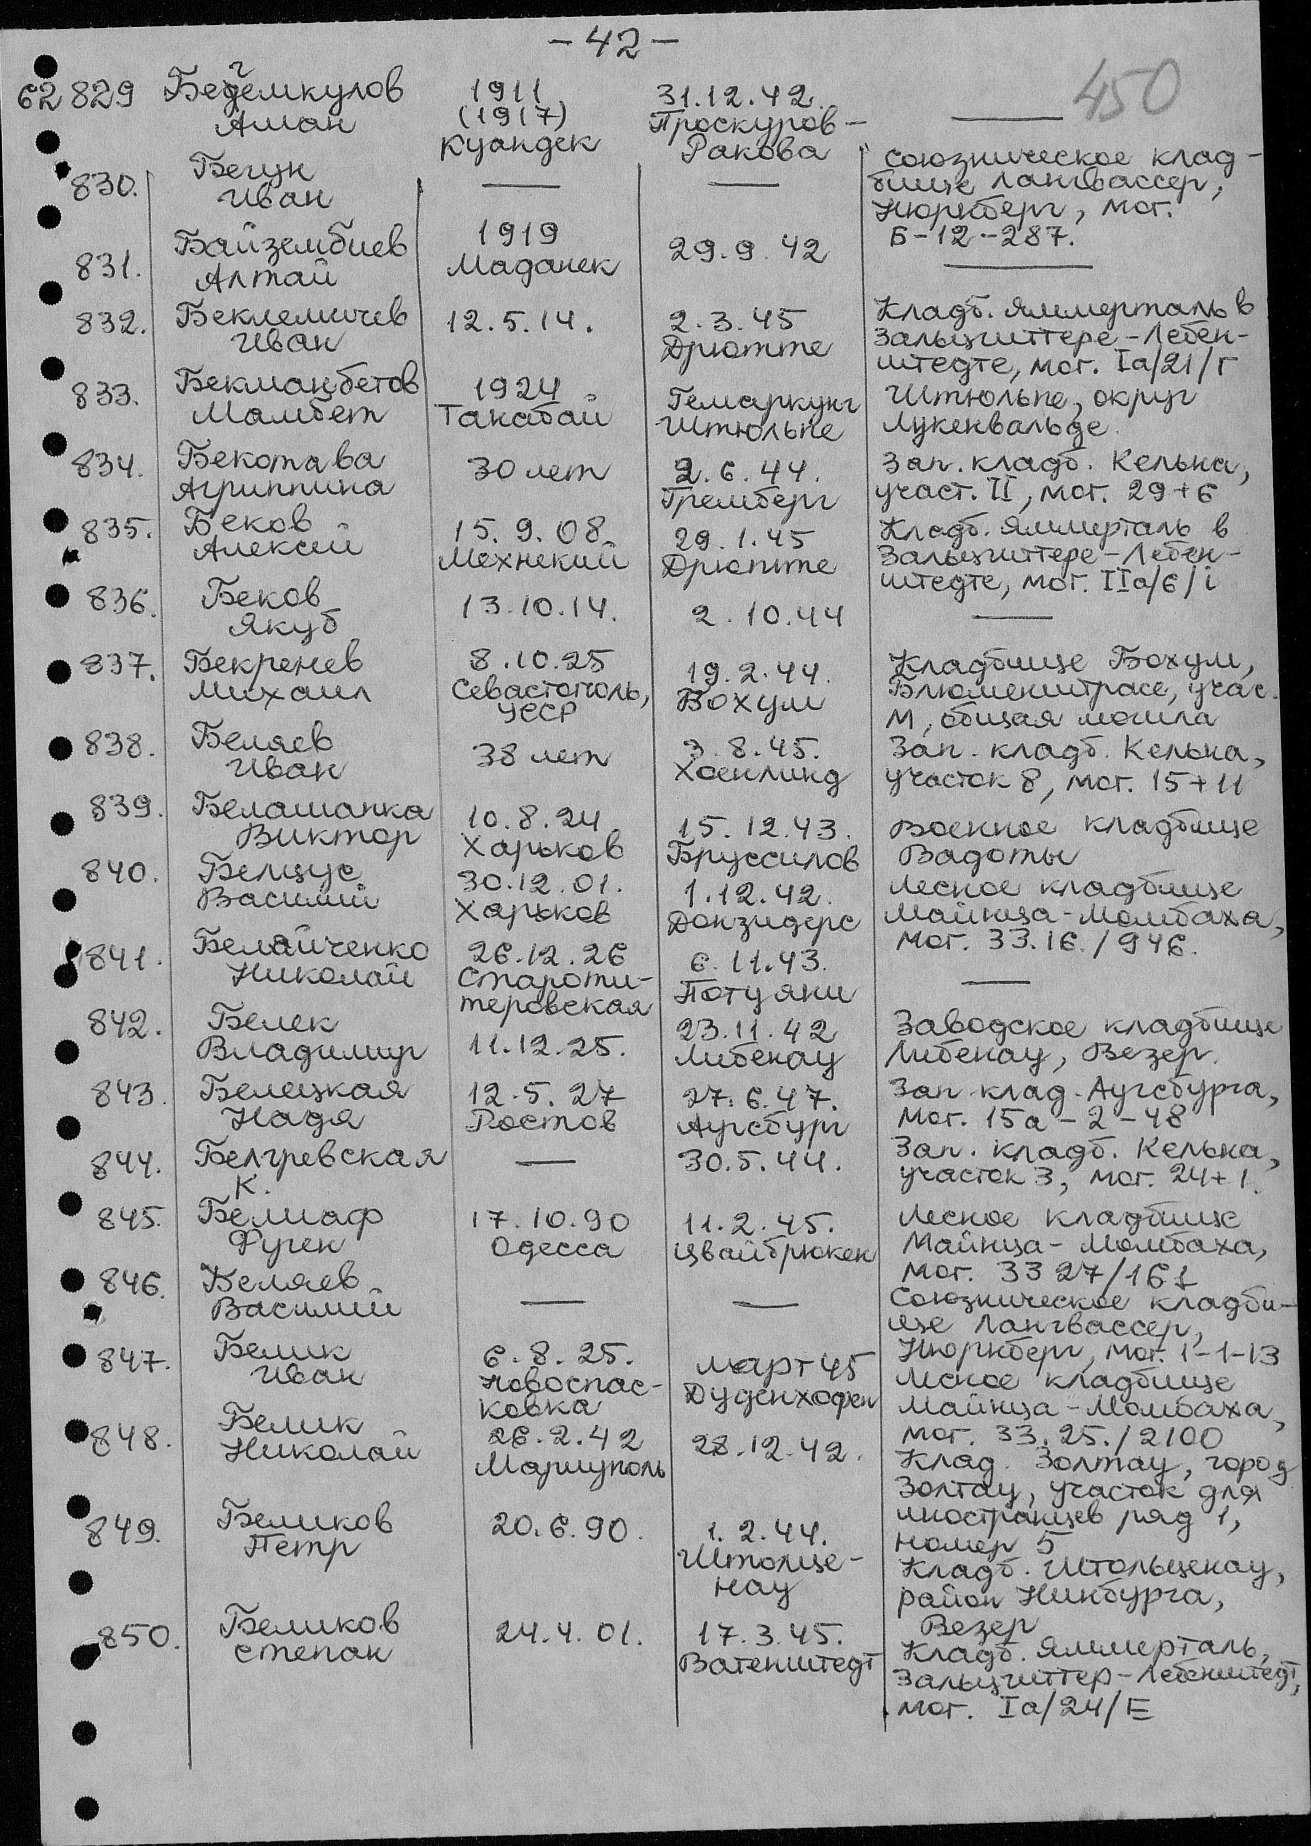 – 42 –
450
62 829 Бедемкулов 1911 31.12.42.
г
Аман (1917) Проскуров–
Куандек Ракова
830. Бегун союзническое клад–
Иван бище Лангвассер,
Нюрнберг, мог.
Б–12–287.
831. Байзембиев 1919 29.9.42
Алтай Маданек
832. Беклемичев 12.5.14. 2.3.45 Кладб. Яммерталь в
Иван Дрютте Зальцгиттере–Лебен–
штедте, мог. Iа/21/г
833. Бекманбетов 1924 Гемаркунг Штюльпе, округ
Мамбет Такабай Штюльпе Лукенвальде.
834. Бекотава 30 лет 2.6.44. Зап. кладб. Кельна,
Агриппина Гремберг участ. II, мог. 29+6
835. Беков 15.9.08 29.1.45 Кладб. Яммерталь в
Алексей Мехнекий Дрютте Зальцгиттере–Лебен–
штедте, мог. IIа/6/i
836. Беков 13.10.14. 2.10.44
Якуб
837. Бекренев 8.10.25 19.2.44. Кладбище Бохум,
Михаил Севастополь, Бохум Блюменштрасе, учас.
УССР М, общая могила
838. Беляев 38 лет 3.8.45. Зап. кладб. Кельна,
Иван Хоенлинд участок 8, мог. 15+11
839. Белашапка 10.8.24 15.12.43. Военное кладбище
Виктор Харьков Бруссилов Вадоты
840. Белцус 30.12.01. 1.12.42. Лесное кладбище
Василий Харьков Донзидерс Майнца–Момбаха,
мог. 33.16./946.
841. Белайченко 26.12.26 6.11.43.
Николай Староти– Потуяни
теровская
842. Белек 11.12.25. 23.11.42 Заводское кладбище
Владимир Либенау Либенау, Везер.
843. Белецкая 12.5.27 27.6.47. Зап. клад. Аугсбурга,
Надя Ростов Аугсбург мог. 15а–2–48
844. Белгревская 30.5.44. Зап. кладб. Кельна,
К. участок 3, мог. 24+1.
845. Белиаф 17.10.90 11.2.45. Лесное кладбище
Фуген Одесса Цвайбрюкен Майнца–Момбаха,
мог. 33 27/161
846. Беляев Союзническое кладби–
Василий ще Лангвассер,
Нюрнберг, мог. 1–1–13
847. Белик 6.8.25. март 45 Лесное кладбище
Иван Новоспас– Дуденхофен Майнца–Момбаха,
ковка мог. 33.25./2100
848. Белик 26.2.42 28.12.42. Клад. Золтау, город
Николай Мариуполь Золтау, участок для
иностранцев ряд 1,
номер 5
849. Беликов 20.6.90. 1.2.44. Кладб. Штольценау,
Петр Штолце– район Нинбурга,
нау Везер
850. Беликов 24.4.01. 17.3.45. Кладб. Яммерталь,
Степан Ватенштедт Зальцгиттер–Лебенштедт,
мог. Iа/24/Е